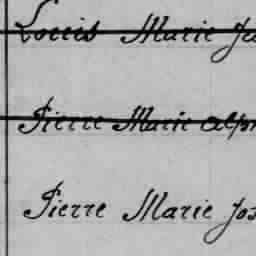 Louis Marie Jos
Pierre Marie Alph
Pierre Marie Jos